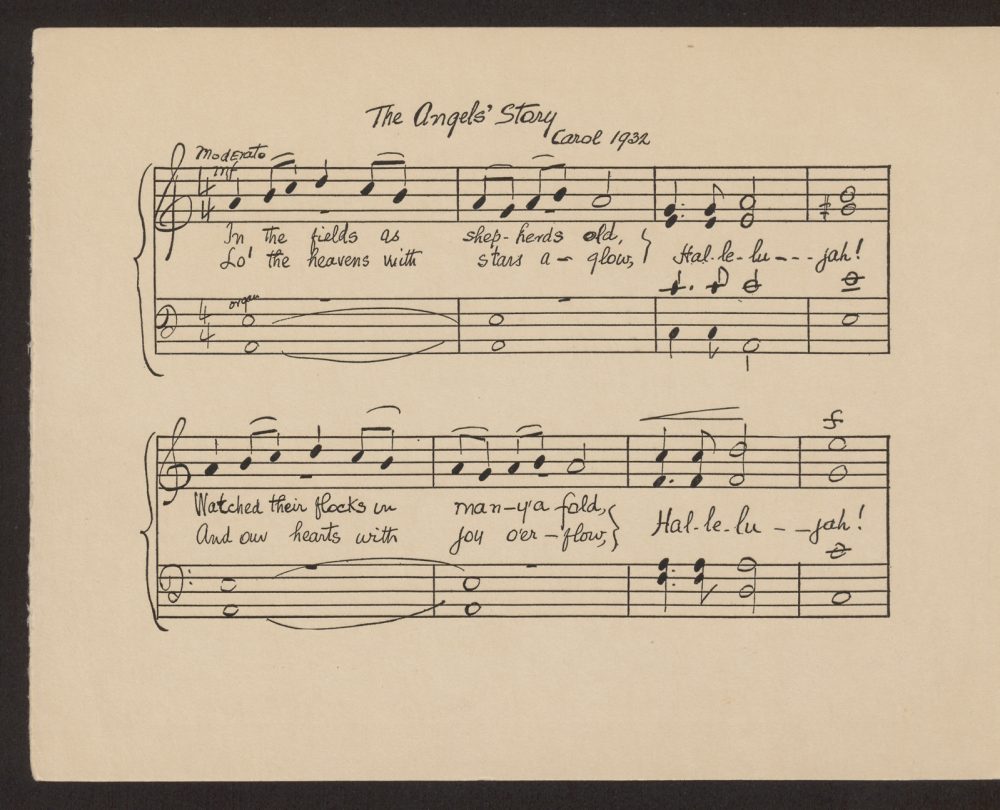 The Angels' Story
Carol 1932
Moderato
mf
4
4
In the fields as shep-herds old, Hal-le-lu---jah!
Lo' the heavens with stars a-glow,
organ
4
4
f
Watched their flocks in man-y'a fold, Hal-le-lu--jah!
And our hearts with joy o'er-flow,